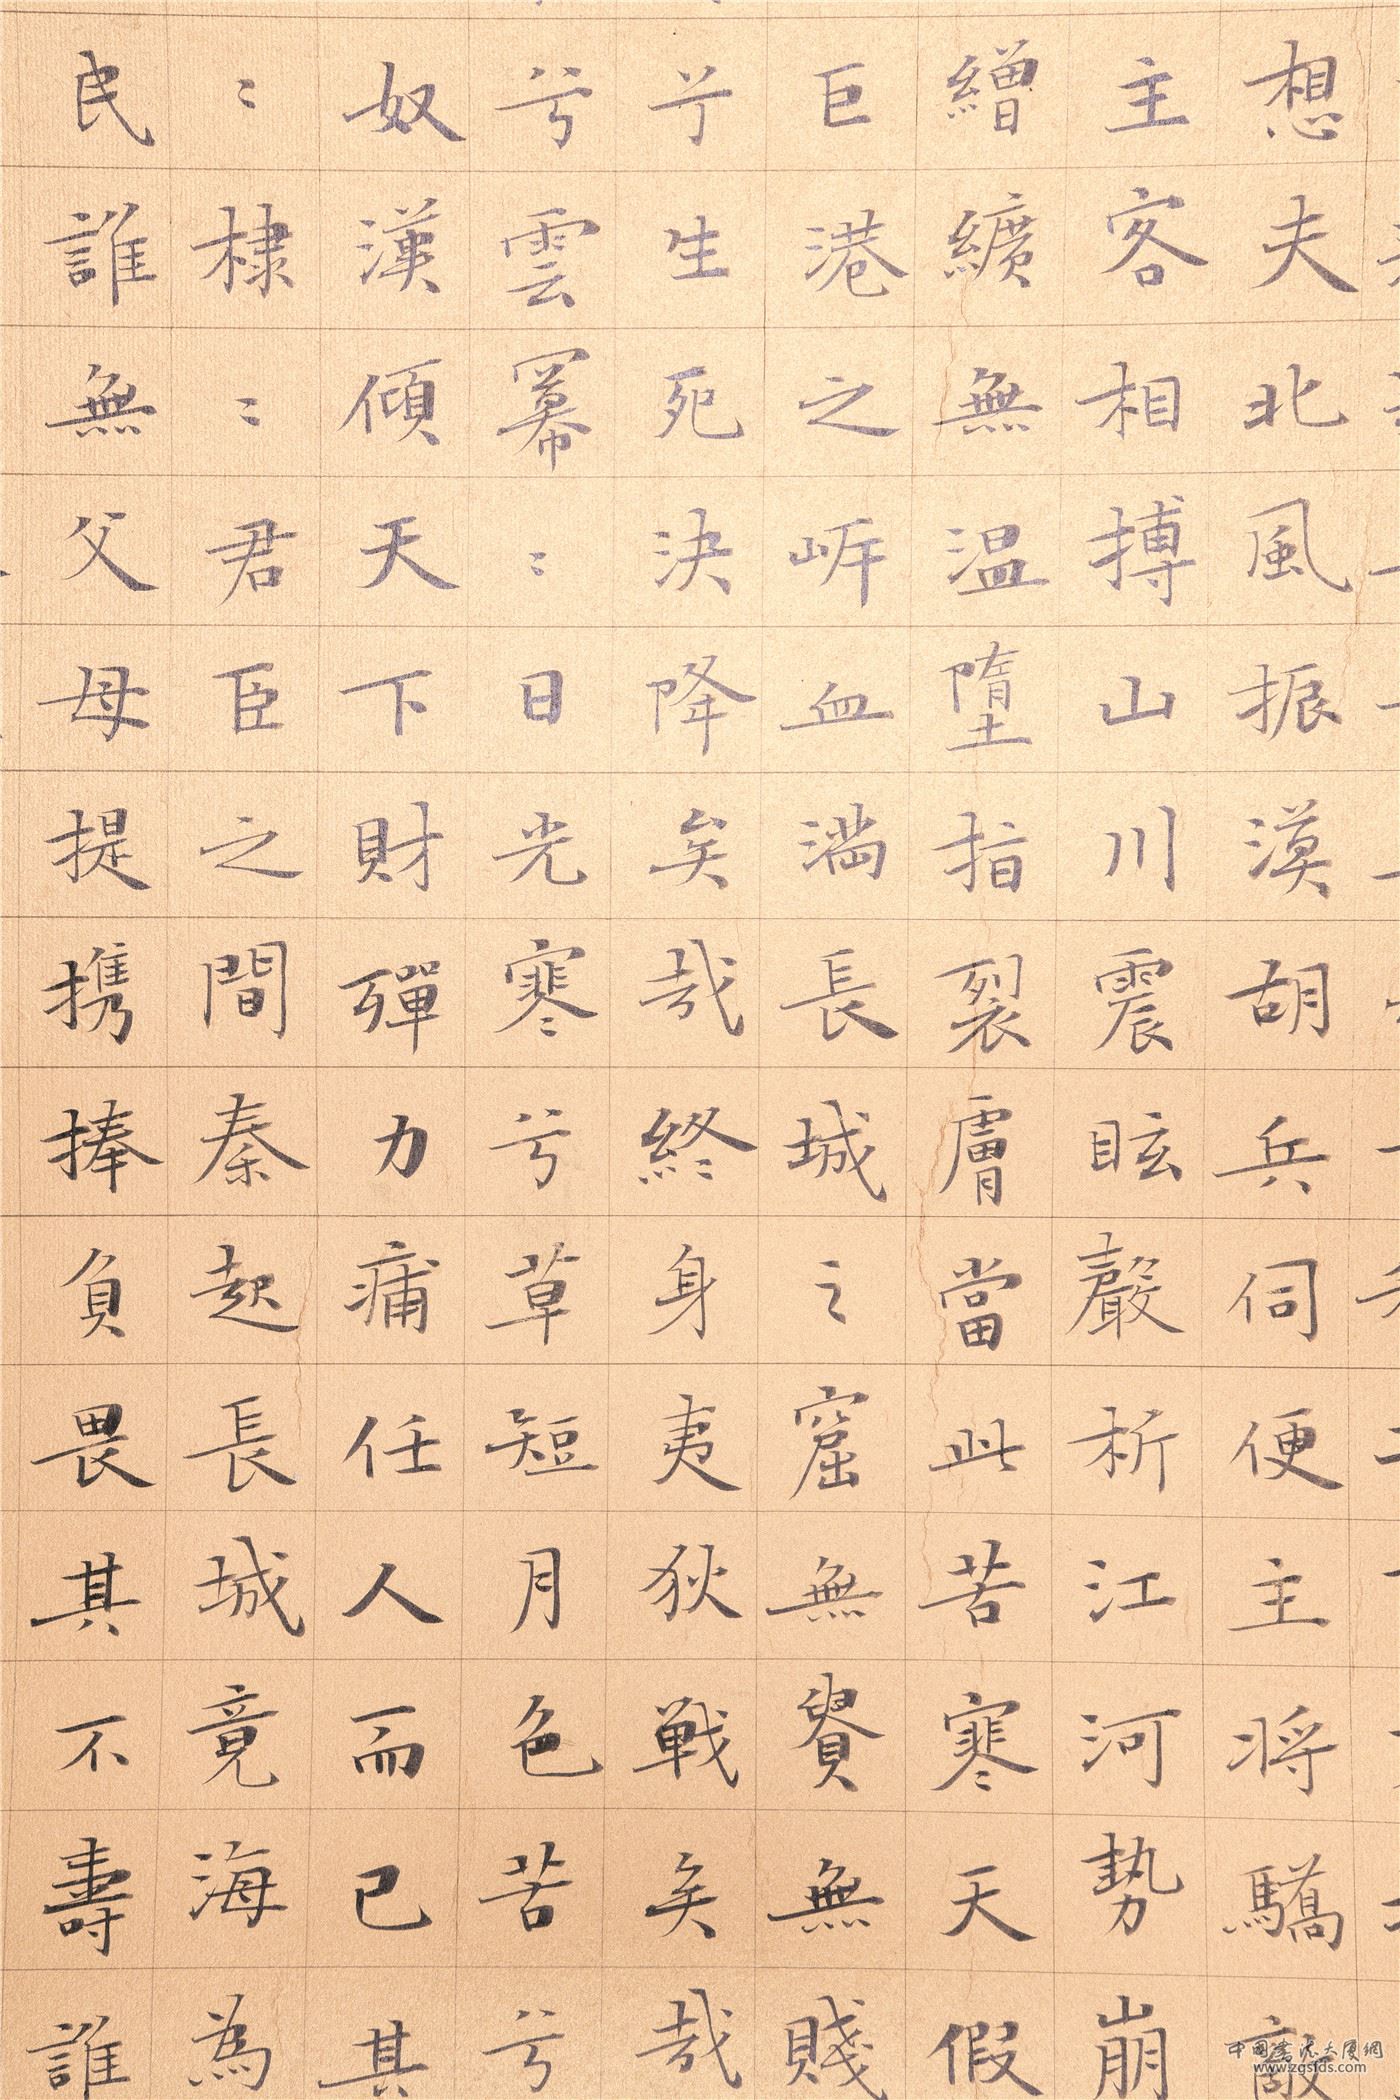 想夫北風振漠胡兵伺便主将驕敵
主客相搏山川震眩聲析江河勢崩
繒纊無温墮指裂膚當此苦寒天假
巨港之岸血満長城之窟無貴無賤
兮生死決降矣哉終身夷狄戦矣哉
兮雲冪〻日光寒兮草短月色苦兮
奴漢傾天下財殫力痡任人而已其
〻棣〻君臣之間秦起長城竟海為
民誰無父母提携捧負畏其不壽誰
中国書法大厦網
www.zgsfds.com